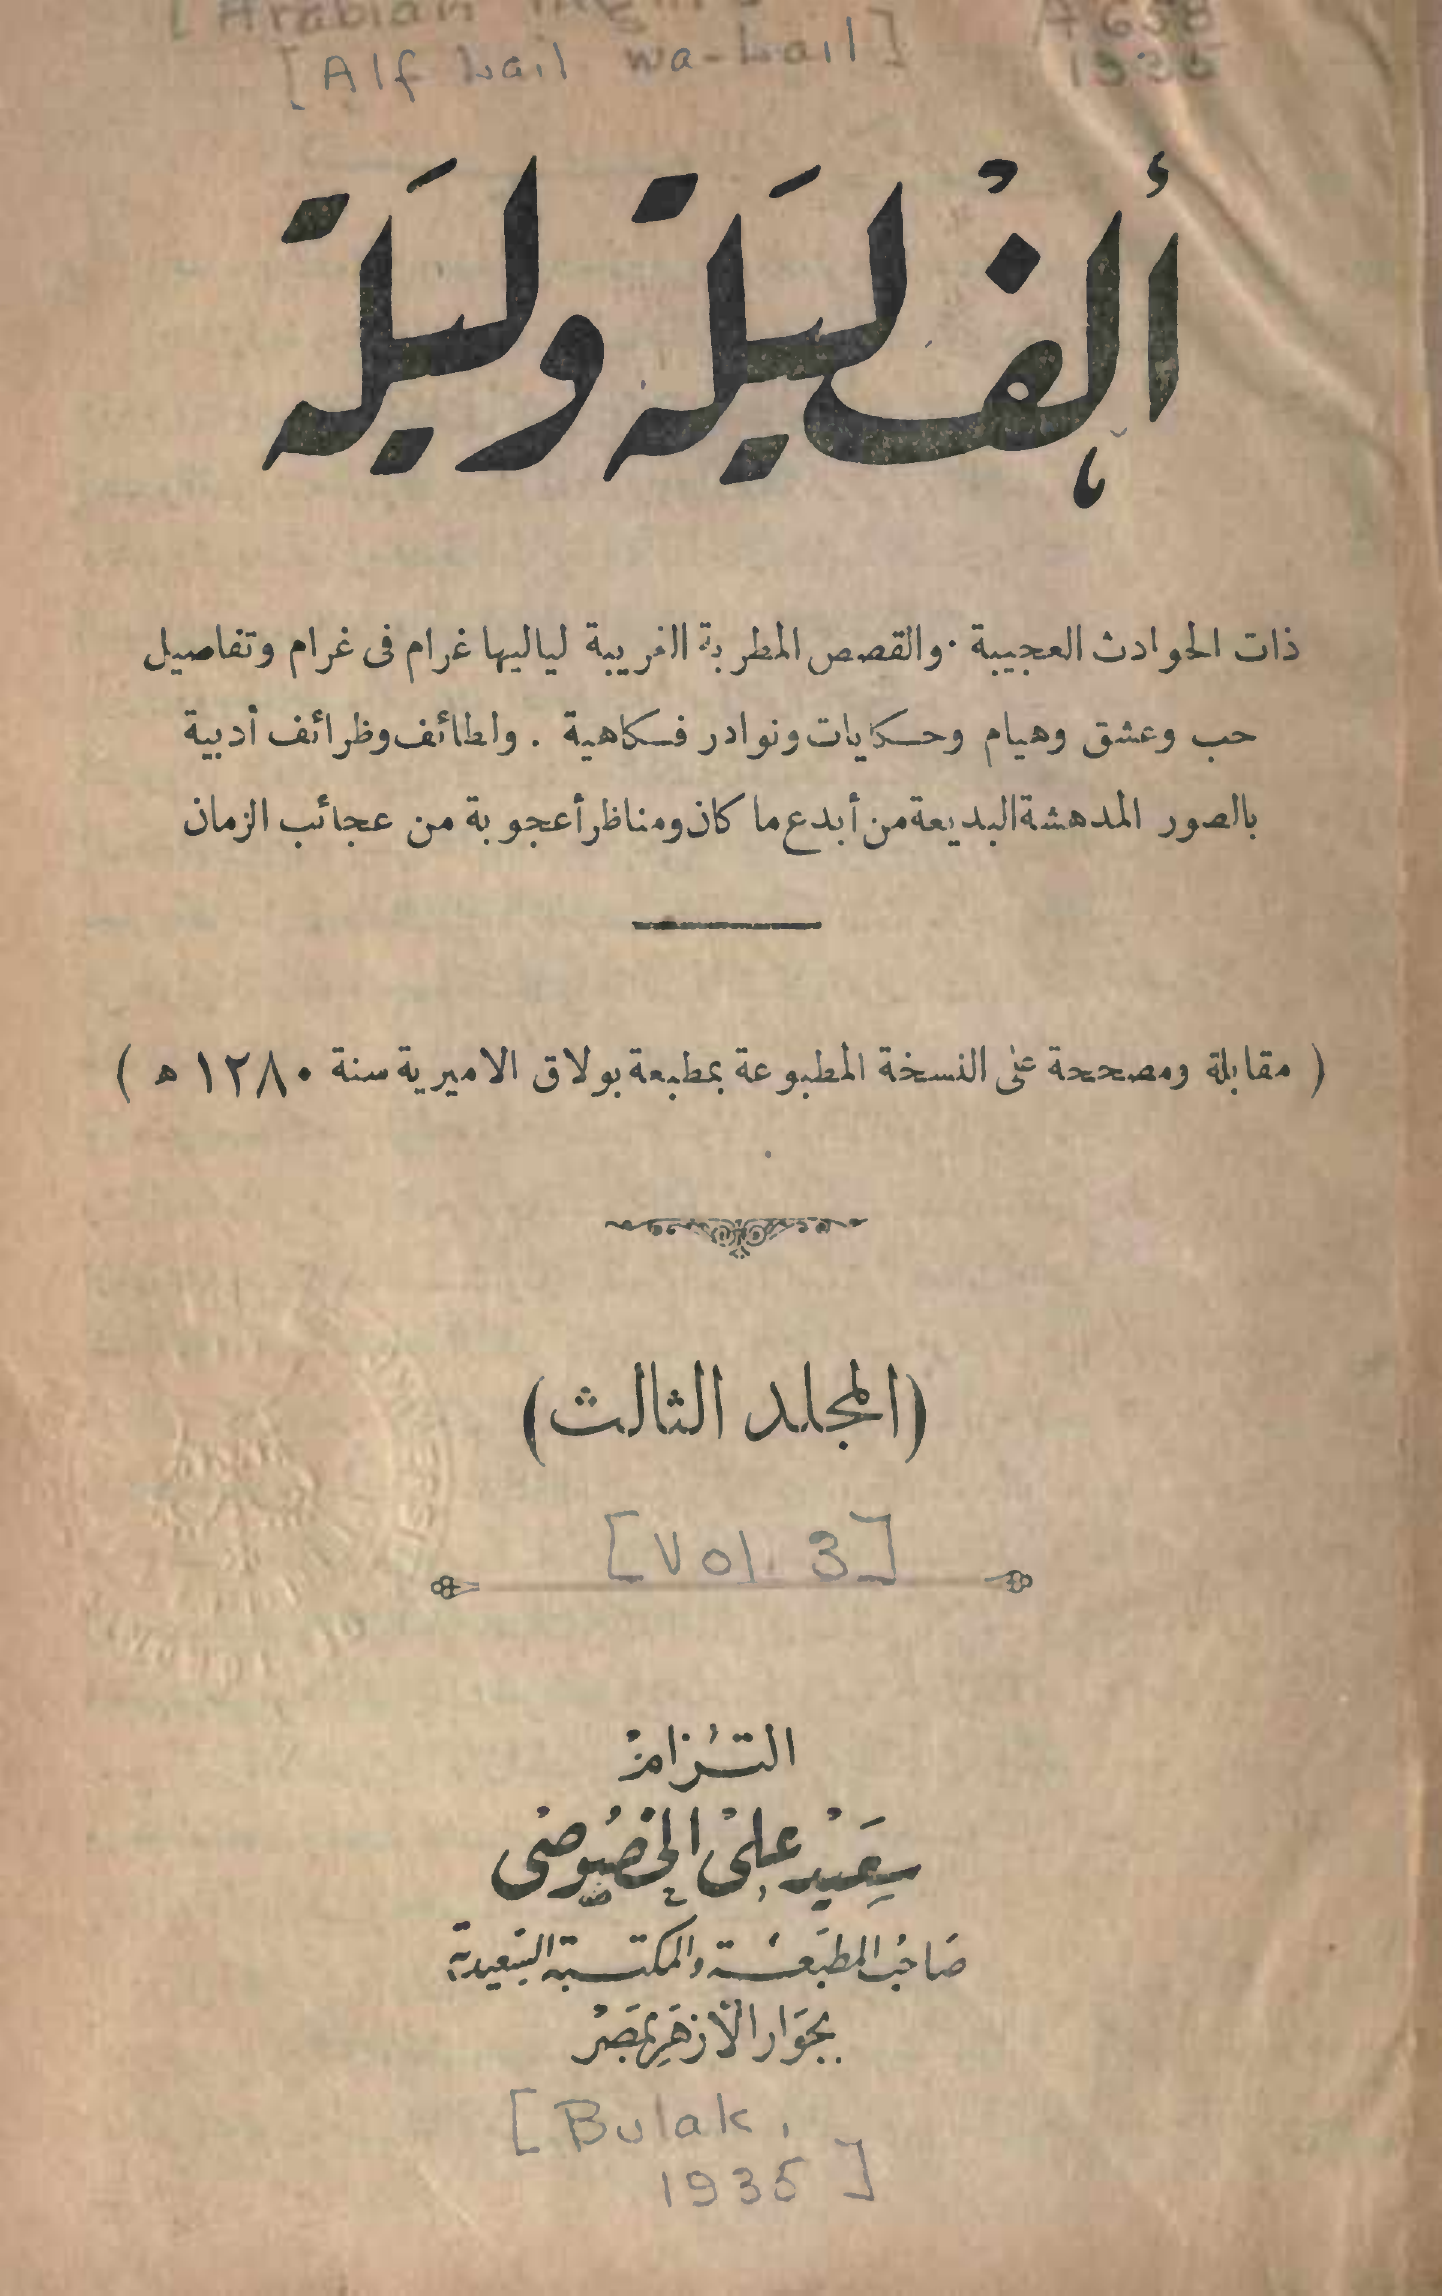 [Arabian Nights
[Alf Lail wa-Lail]
A658
1935
ألف ليلة وليلة
ذات الحوادث العجيبة . والقصص المطربة الغريبة لياليها غرام فى غرام وتفاصيل
حب وعشق وهيام وحكايات ونوادر فكاهية . ولطائف وظرائف أدبية
بالصور المدهشة البديعة من أبدع ما كان ومناظر أعجوبة من عجائب الزمان
( مقابلة ومصححة على النسخة المطبوعة بمطبعة بولاق الاميرية سنة ١٢٨٠ ه )
(المجلد الثالث)
[Vol. 3]
التزام
سعيد على الخصوصى
صاحب المطبعة والمكتبة السعيدية
بجوار الأزهر بمصر
[Bulak,
1935]